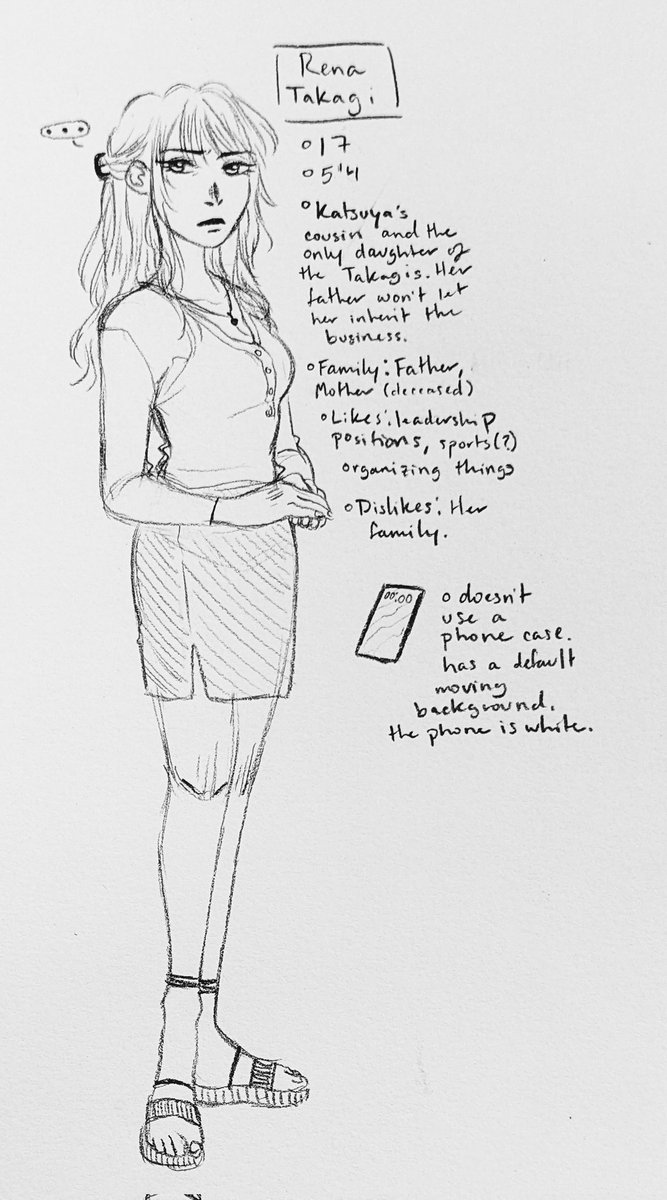 Rena
Takagi
17
5'4
Katsuya's
cousin and the
only daughter of
the Takagis. Her
father won't let
her inherit the
business.
Family: Father,
Mother (deceased)
Likes: leadership
positions, sports(?)
organizing things
Dislikes: Her
family.
00:00
doesn't
use a
phone case.
has a default
moving
background.
the phone is white.